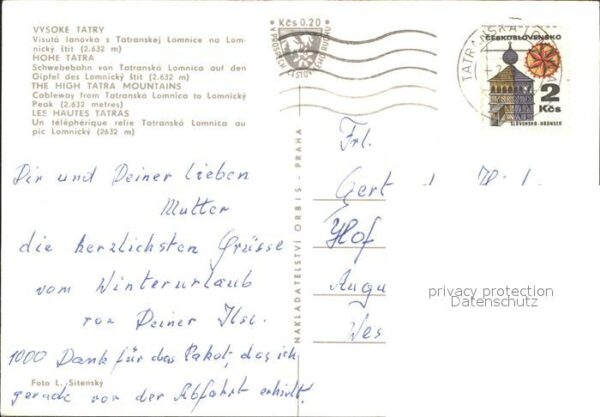 VYSOKÉ TATRY
Visutá lanovka z Tatranskej Lomnice na Lom-
nický štít (2.632 m)
HOHE TATRA
Schwebebahn von Tatranská Lomnica auf den
Gipfel des Lomnický štít (2.632 m)
THE HIGH TATRA MOUNTAINS
Cableway from Tatranská Lomnica to Lomnický
Peak (2.632 metres)
LES HAUTES TATRAS
Un téléphérique relie Tatranská Lomnica au
pic Lomnický (2632 m)
Kčs 0.20
ČESKOSLOVENSKO
2
Kčs
SLOVENSKO - HRONSEK
Dir und Deiner lieben
Mutter
die herzlichsten Grüsse
vom Winterurlaub
von Deiner Ilse.
1000 Dank für das Paket, das ich
gerade vor der Abfahrt erhielt!
Foto L. Sitenský
NAKLADATELSTVÍ ORBIS - PRAHA
Frl.
Gert
Hof
Augu
Wes
privacy protection
Datenschutz